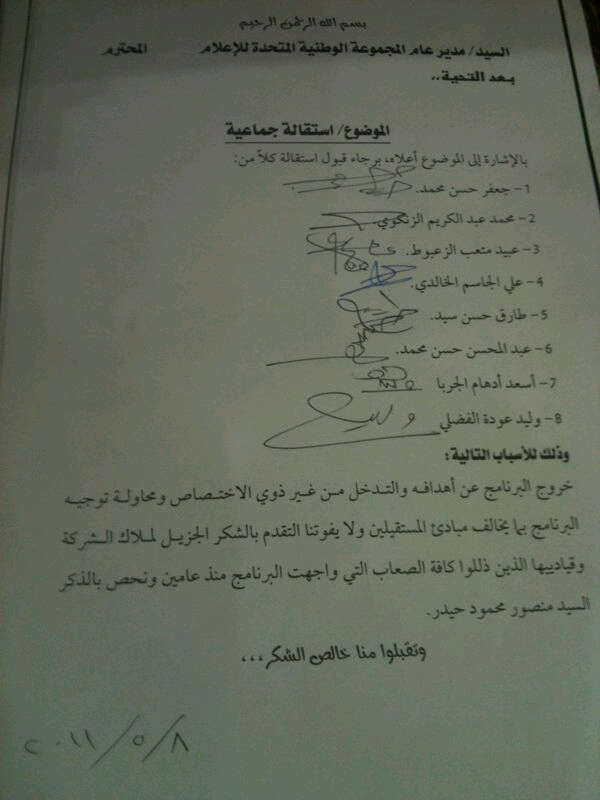 بسم الله الرحمن الرحيم
السيد/ مدير عام المجموعة الوطنية المتحدة للإعلام المحترم
بعد التحية..
الموضوع/ استقالة جماعية
بالإشارة إلى الموضوع أعلاه، برجاء قبول استقالة كلاً من:
1- جعفر حسن محمد.
2- محمد عبد الكريم الزنكوي.
3- عبيد متعب الزعبوط.
4- علي الجاسم الخالدي.
5- طارق حسن سيد.
6- عبد المحسن حسن محمد.
7- أسعد أدهام الجربا
8- وليد عودة الفضلي وليد
وذلك للأسباب التالية:
خروج البرنامج عن أهدافه والتدخل من غير ذوي الاختصاص ومحاولة توجيه
البرنامج بما يخالف مبادئ المستقيلين ولا يفوتنا التقدم بالشكر الجزيل لملاك الشركة
وقيادييها الذين ذللوا كافة الصعاب التي واجهت البرنامج منذ عامين ونحص بالذكر
السيد منصور محمود حيدر.
وتقبلوا منا خالص الشكر،،،
٢٠١١/٥/٨